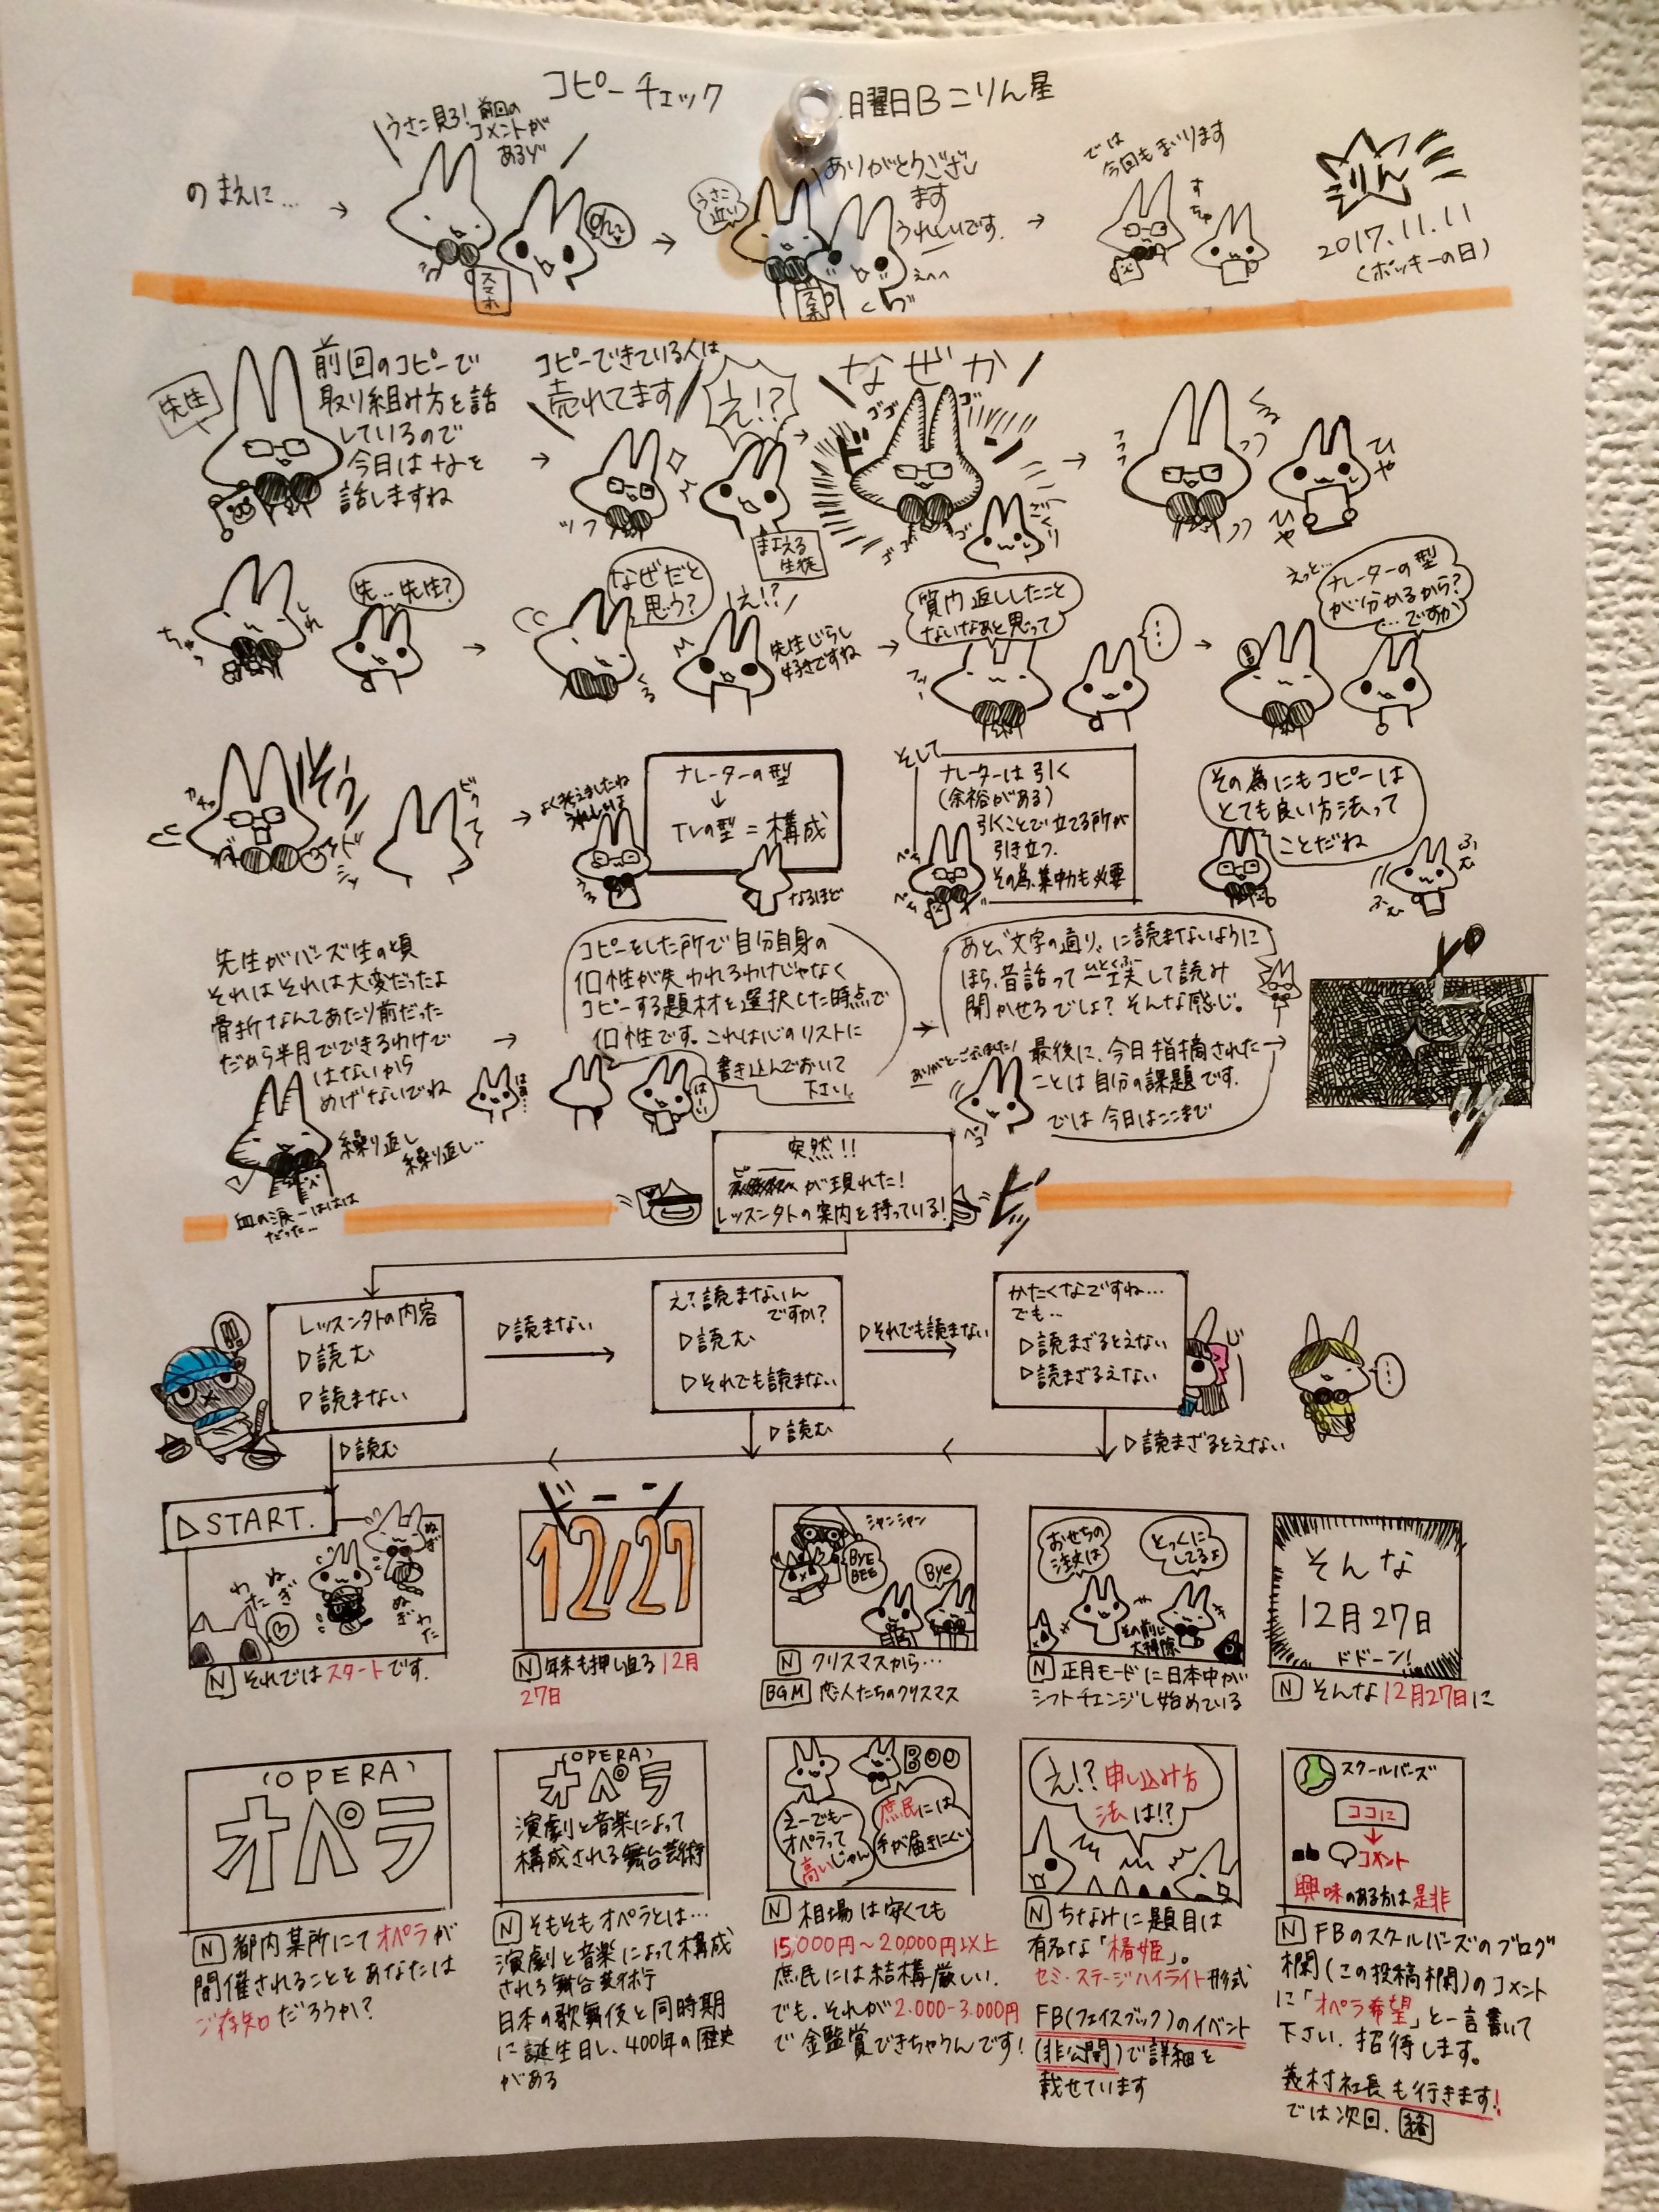 コピーチェック
日曜日Bこりん星
のまえに…
うさこ見ろ!前回の
コメントが
あるぞ
スマホ
うさこ
近い
ありがとうござい
ます
うれしいです。
えへへ
では
今回もまいります
すちゃ
りん
2017.11.11
(ポッキーの日)
先生
前回のコピーで
取り組み方を話
しているので
今日はなを
話しますね
コピーできている人は
売れてます
え!?
まよえる
生徒
なぜか
ドン
ゴゴゴ
ごくり
くる
ひや
ひや
ちゅう
しれ
先…先生?
なぜだと
思う?
くる
え!?
先生じらし
好きですね
質問返ししたこと
ないなあと思って
…
えっと…
ナレーターの型
が分かるから?
…ですか
そう
カチャ
ビクって
よく考えましたね
うれしいよ
ナレーターの型
↓
TVの型=構成
なるほど
そして
ナレーターは引く
(余裕がある)
引くことで立てる所が
引き立つ。
その為、集中力も必要
その為にもコピーは
とても良い方法って
ことだね
ふむ
ふむ
先生がバーズ生の頃
それはそれは大変だったよ
骨折なんてあたり前だった
だから半月でできるわけで
はないから
めげないでね
繰り返し
繰り返し…
血の涙ーははは
だった…
コピーをした所で自分自身の
個性が失われるわけじゃなく
コピーする題材を選択した時点で
個性です。これは心のリストに
書き込んでおいて
下さい。
はーい
あと、"文字の通り"に読まないように
ほら、昔話って一工夫して読み
ひとくふう
聞かせるでしょ?そんな感じ。
ありがとーございました!
ペコ
最後に、今日指摘された
ことは自分の課題です。
では今日はここまで
突然!!
が現れた!
レッスン外の案内を持っている!
レッスン外の内容
▷読む
▷読まない
▷読まない
え?読まないん
ですか?
▷読む
▷それでも読まない
▷それでも読まない
かたくなですね…
でも…
▷読まざるとえない
▷読まざるえない
じ
…
▷読む
▷読む
▷読まざるとえない
▷START.
わた
ぬぎ
ぬぎ
ぬぎ
わた
N それではスタートです。
ドーン
12/27
N 年末も押し迫る12月
27日
シャンシャン
BYE
BEE
Bye
N クリスマスから…
BGM 恋人たちのクリスマス
おせちの
注文は
とっくに
してるよ
その前に
大掃除
N 正月モードに日本中が
シフトチェンジし始めている
そんな
12月27日
ドドーン!
N そんな12月27日に
'OPERA'
オペラ
N 都内某所にてオペラが
開催されることをあなたは
ご存知だろうか?
'OPERA'
オペラ
演劇と音楽によって
構成される舞台芸術
N そもそもオペラとは…
演劇と音楽によって構成
される舞台芸術
日本の歌舞伎と同時期
に誕生日し、400年の歴史
がある
BOO
えーでもー
オペラって
高いじゃん
庶民には
手が届きにくい
N 相場は安くても
15,000円~20,000円以上
庶民には結構厳しい。
でも、それが2.000-3.000円
で金監賞できちゃうんです!
え!?申し込み方
法は!?
N ちなみに題目は
有名な「椿姫」。
セミ・ステージハイライト形式
FB(フェイスブック)のイベント
(非公開)で詳細を
載せています
スクールバーズ
ココに
↓
コメント
興味のある方は是非
N FBのスクールバーズのブログ
欄(この投稿欄)のコメント
に「オペラ希望」と一言書いて
下さい。招待します。
義村社長も行きます!
では次回。終